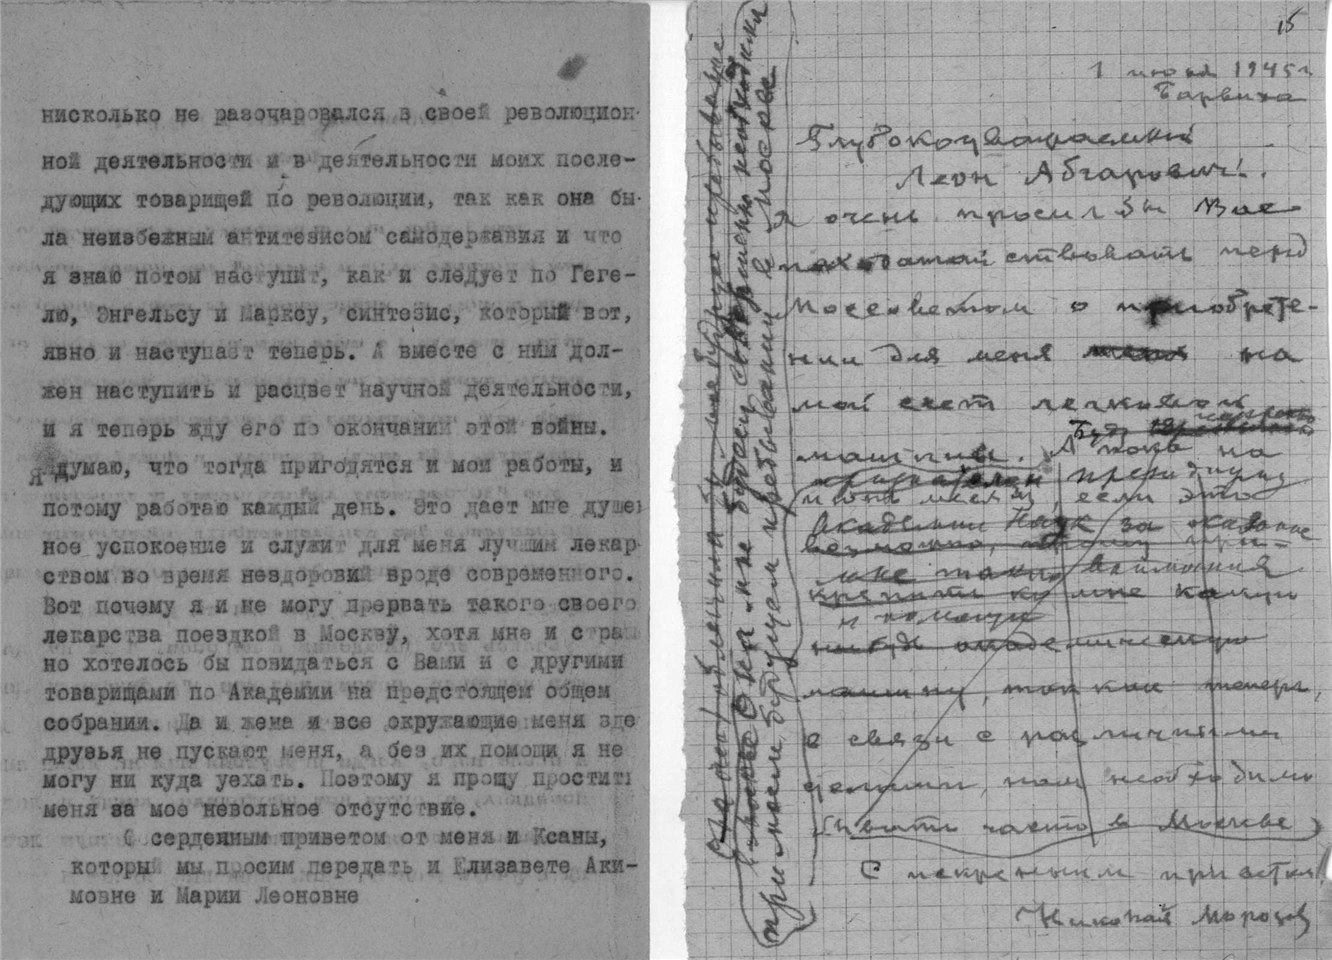 нисколько не разочаровался в своей революцион-
ной деятельности и в деятельности моих после-
дующих товарищей по революции, так как она бы-
ла неизбежным антитезисом самодержавия и что
я знаю потом наступит, как и следует по Геге-
лю, Энгельсу и Марксу, синтезис, который вот,
явно и наступает теперь. А вместе с ним дол-
жен наступить и расцвет научной деятельности,
и я теперь жду его по окончании этой войны.
Я думаю, что тогда пригодятся и мои работы, и
потому работаю каждый день. Это дает мне душев
ное успокоение и служит для меня лучшим лекар-
ством во время нездоровий вроде современного.
Вот почему я и не могу прервать такого своего
лекарства поездкой в Москву, хотя мне и страш
но хотелось бы повидаться с Вами и с другими
товарищами по Академии на предстоящем общем
собрании. Да и жена и все окружающие меня зде
друзья не пускают меня, а без их помощи я не
могу ни куда уехать. Поэтому я прощу простить
меня за мое невольное отсутствие.
С серденным приветом от меня и Ксаны,
который мы просим передать и Елизавете Аки-
мовне и Марии Леоновне
15
1 июня 1945 г
Барвиха
Глубокоуважаемый
Леон Абгарович!
Я очень просил бы Вас
походатайствовать перед
Моссоветом о приобрете-
нии для меня меня на
мой счет легковой
машины. А пока на
июнь месяц, если это
Академии Наук за оказание
возможно, прошу при-
мне таких внимания
крепить ко мне какую
и помощи
нибудь академическую
машину, так как теперь,
в связи с различными
делами, нам необходимо
бывать часто в Москве
С искренним приветом,
Николай Морозов
она мне будет совершенно необходима
при моем будущем пребывании в Москве